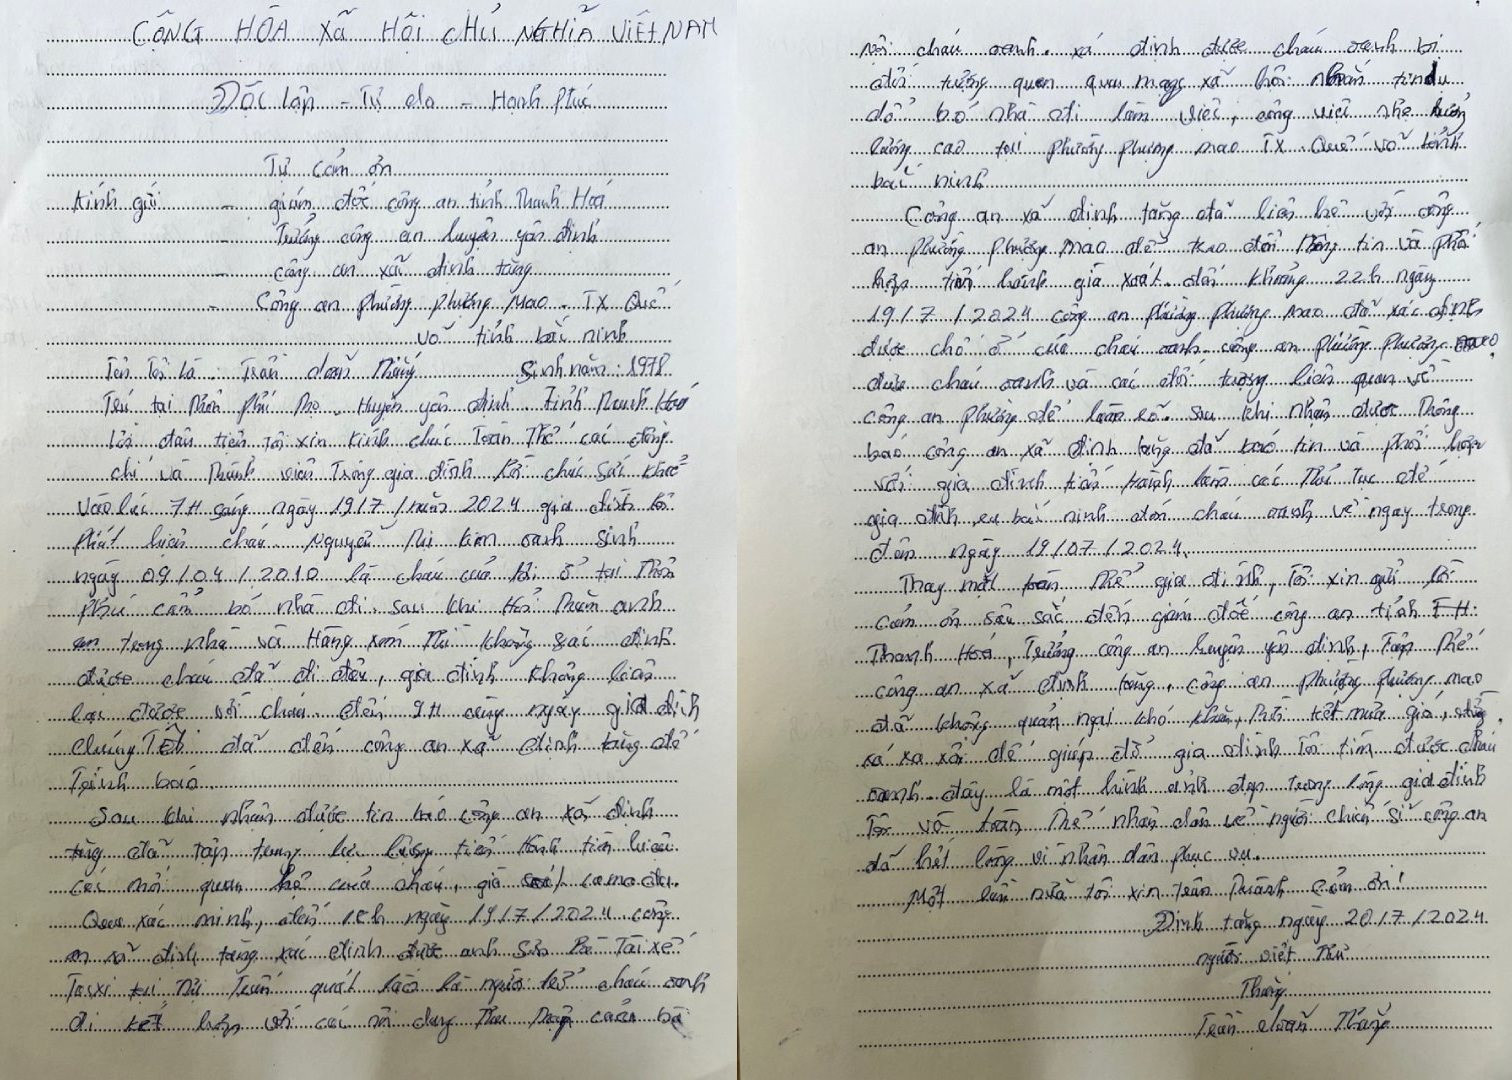 CỘNG HÒA XÃ HỘI CHỦ NGHĨA VIỆT NAM
Độc lập - Tự do - Hạnh phúc
Tự cảm ơn
Kính gửi - giám đốc công an tỉnh Thanh Hoá
- Trưởng công an huyện yên định
- công an xã định tăng
- Công an phường phương Mao. TX Quế
võ tỉnh bắc ninh
Tên Tôi là: Trần doãn Thắng Sinh năm: 1978
Trú tại Thôn Phú Thọ. Huyện yên định. tỉnh Thanh Hoá
Lời đầu tiên tôi xin kính chúc Toàn Thể các đồng
chí và thành viên Trong gia đình lời chúc sức khoẻ
Vào lúc 7H sáng ngày 19/7/năm 2024 gia đình tôi
phát hiện cháu. Nguyễn Thị kim oanh sinh
ngày 09/04/2010 là cháu của tôi ở tại Thôn
Phú cẩm bỏ nhà đi. sau khi Hỏi Thăm anh
em trong nhà và Hàng xóm Thì không xác định
được cháu đã đi đâu, gia đình không liên
lạc được với cháu. đến 9H cùng ngày gia đình
chúng Tôi đã đến công an xã định tăng để
Trình báo
Sau khi nhận được tin báo công an xã định
tăng đã tập trung lực lượng tiến hành tìm hiểu
các mối quan hệ của cháu, gia camera.
Qua xác minh, đến ngày 19/7/2024 công
an xã định tăng xác định được anh Tài xế
Taxi tại là người trở cháu oanh
đi kết hợp với các nội dung Thu Thập căn bộ
với cháu oanh. xác định được cháu oanh bị
đối tượng quen qua mạng xã hội nhắn tin dụ
dỗ bỏ nhà đi làm việc, công việc nhẹ hưởng
lương cao tại phường phương mao TX. Quế võ tỉnh
bắc ninh
Công an xã định tăng đã liên hệ với công
an phường phương mao để trao đổi thông tin và phối
hợp tiến hành già xoát. đến khoảng 22h ngày
19/7/2024 công an phường phương mao đã xác định
được chỗ ở của cháu oanh. công an phường phương mao
đưa cháu oanh và các đối tượng liên quan về
công an phường để làm rõ. sau khi nhận được Thông
báo công an xã định tăng đã báo tin và phối hợp
với gia đình tiến hành làm các Thủ Tục để
gia đình ra bắc ninh đón cháu oanh về ngay trong
đêm ngày 19/07/2024.
Thay mặt toàn Thể gia đình, Tôi xin gửi lời
Cảm ơn sâu sắc đến giám đốc công an tỉnh TH:
Thanh Hoá, Trưởng công an huyện yên định, Tập Thể
công an xã định tăng, công an phường phương mao
đã không quản ngại khó khăn, Thời tiết mưa gió, đường
xá xa xôi để giúp đỡ gia đình Tôi tìm được cháu
oanh. đây là một hình ảnh đẹp trong lòng gia đình
Tôi và toàn Thể nhân dân về người chiến sĩ công an
đã hết lòng vì nhân dân phục vụ.
Một lần nữa tôi xin trân Thành Cảm ơn!
Định tăng ngày 20/7/2024
người viết Thư
Thắng
Trần doãn Thắng